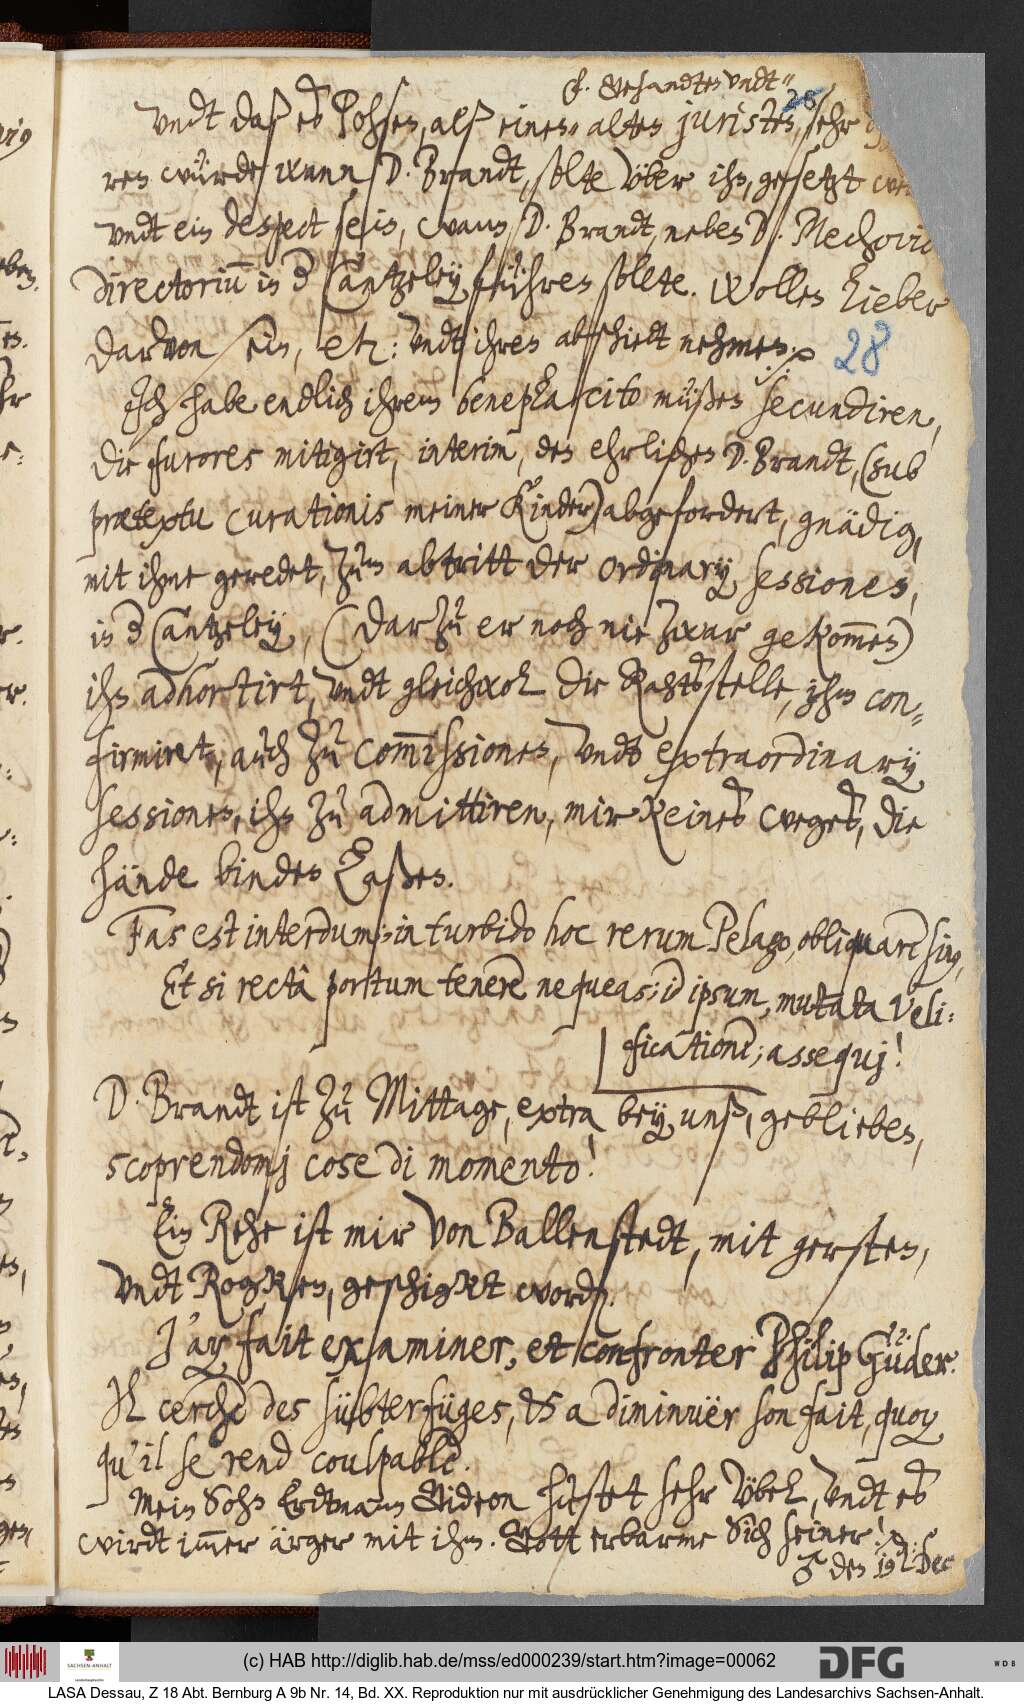 vndt
28
Vndt daß es Pohsen, alß einen alten juristen, sehr
ren würde, wann D. Brandt, solte vber ihn, gesetzt
vndt ein despect sein, wann D. Brandt, neben D. Mechovio
directorium in der Cantzeley führen sollte. Wollen lieber
darvon sein, etc: vndt ihren abschiedt nehmen.
28
Jch habe endlich ihrem beneplacito müßen secundiren,
die furores mitigirt, interim, den ehrlichen D. Brandt, (sub
prætextu curationis meiner Kinder) abgefordert, gnädig,
mit ihme geredet, zum abtritt der ordinarij sessionen,
in der Cantzeley, (dar zu er noch nie zwar gekommen)
ihn adhortirt, vndt gleichwol die Rahtsstelle, ihm con„
firmiret, auch zu Commissionen, vndt extraordinarij
sessionen, ihn zu admittiren, mir keines weges, die
hände binden laßen.
Fas est interdum; in turbido hoc rerum Pelago, obliquare sinus,
Et si rectâ portum tenere nequeas; id ipsum, mutata Veli:
ficatione; assequj!
D. Brandt ist zu Mittage, extra bey vnß, geblieben,
scoprendomj cose di momento!
Ein Rehe ist mir von Ballenstedt, mit gersten,
vndt Rogken, geschigkt worden.
J'ay fait examiner, et confronter Philip Güder.
Jl cerche des subterfuges, et a diminuër son fait, quoy
qu'il se rend coulpable.
Mein Sohn Erdtmann Gideon hustet sehr vbel, vndt es
wirdt immer ärger mit ihm. Gott erbarme Sich seiner!
♂ den 19. Dec
(c) HAB http://diglib.hab.de/mss/ed000239/start.htm?image=00062
SACHSEN-ANHALT
DFG
WDB
LASA Dessau, Z 18 Abt. Bernburg A 9b Nr. 14, Bd. XX. Reproduktion nur mit ausdrücklicher Genehmigung des Landesarchivs Sachsen-Anhalt.